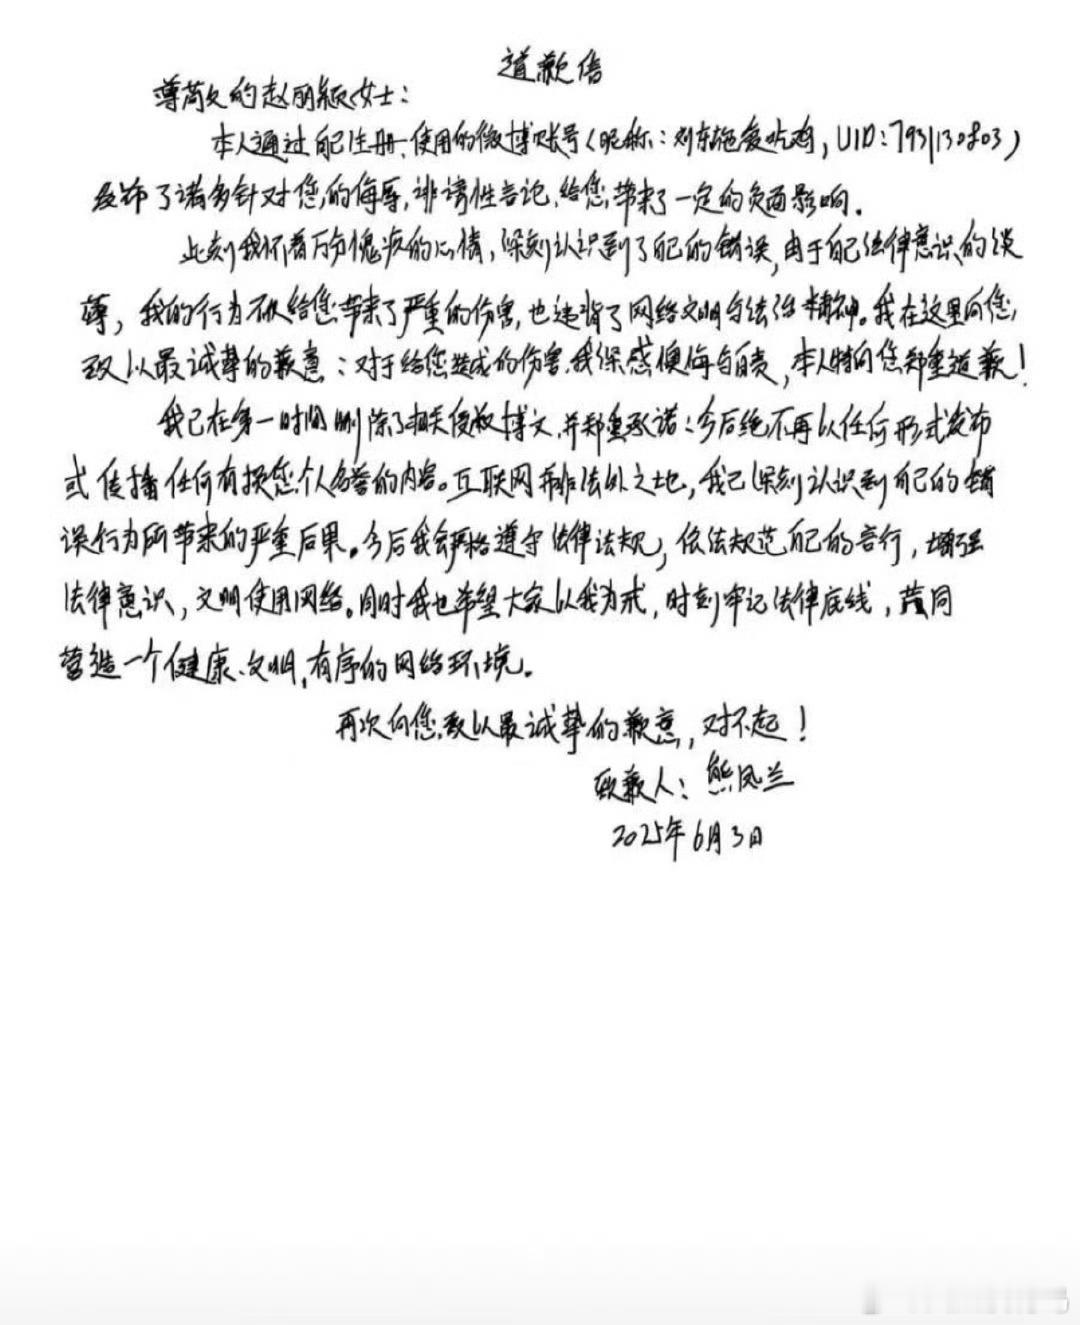 道歉信
尊敬的赵丽颖女士：
本人通过自己注册、使用的微博账号（昵称：刘东施爱吃鸡，UID：7931130803）
发布了诸多针对您的侮辱、诽谤性言论，给您带来了一定的负面影响。
此刻我怀着万分愧疚的心情，深刻认识到了自己的错误，由于自己法律意识的淡
薄，我的行为不仅给您带来了严重的伤害，也违背了网络文明与法治精神。我在这里向您
致以最诚挚的歉意：对于给您造成的伤害，我深感懊悔与自责，本人特向您郑重道歉！
我已在第一时间删除了相关侵权博文，并郑重承诺：今后绝不再以任何形式发布
或传播任何有损您个人名誉的内容。互联网并非法外之地，我已深刻认识到自己的错
误行为所带来的严重后果。今后我会严格遵守法律法规，依法规范自己的言行，增强
法律意识，文明使用网络。同时我也希望大家以我为戒，时刻牢记法律底线，共同
营造一个健康、文明、有序的网络环境。
再次向您致以最诚挚的歉意，对不起！
致歉人：熊凤兰
2025年6月3日